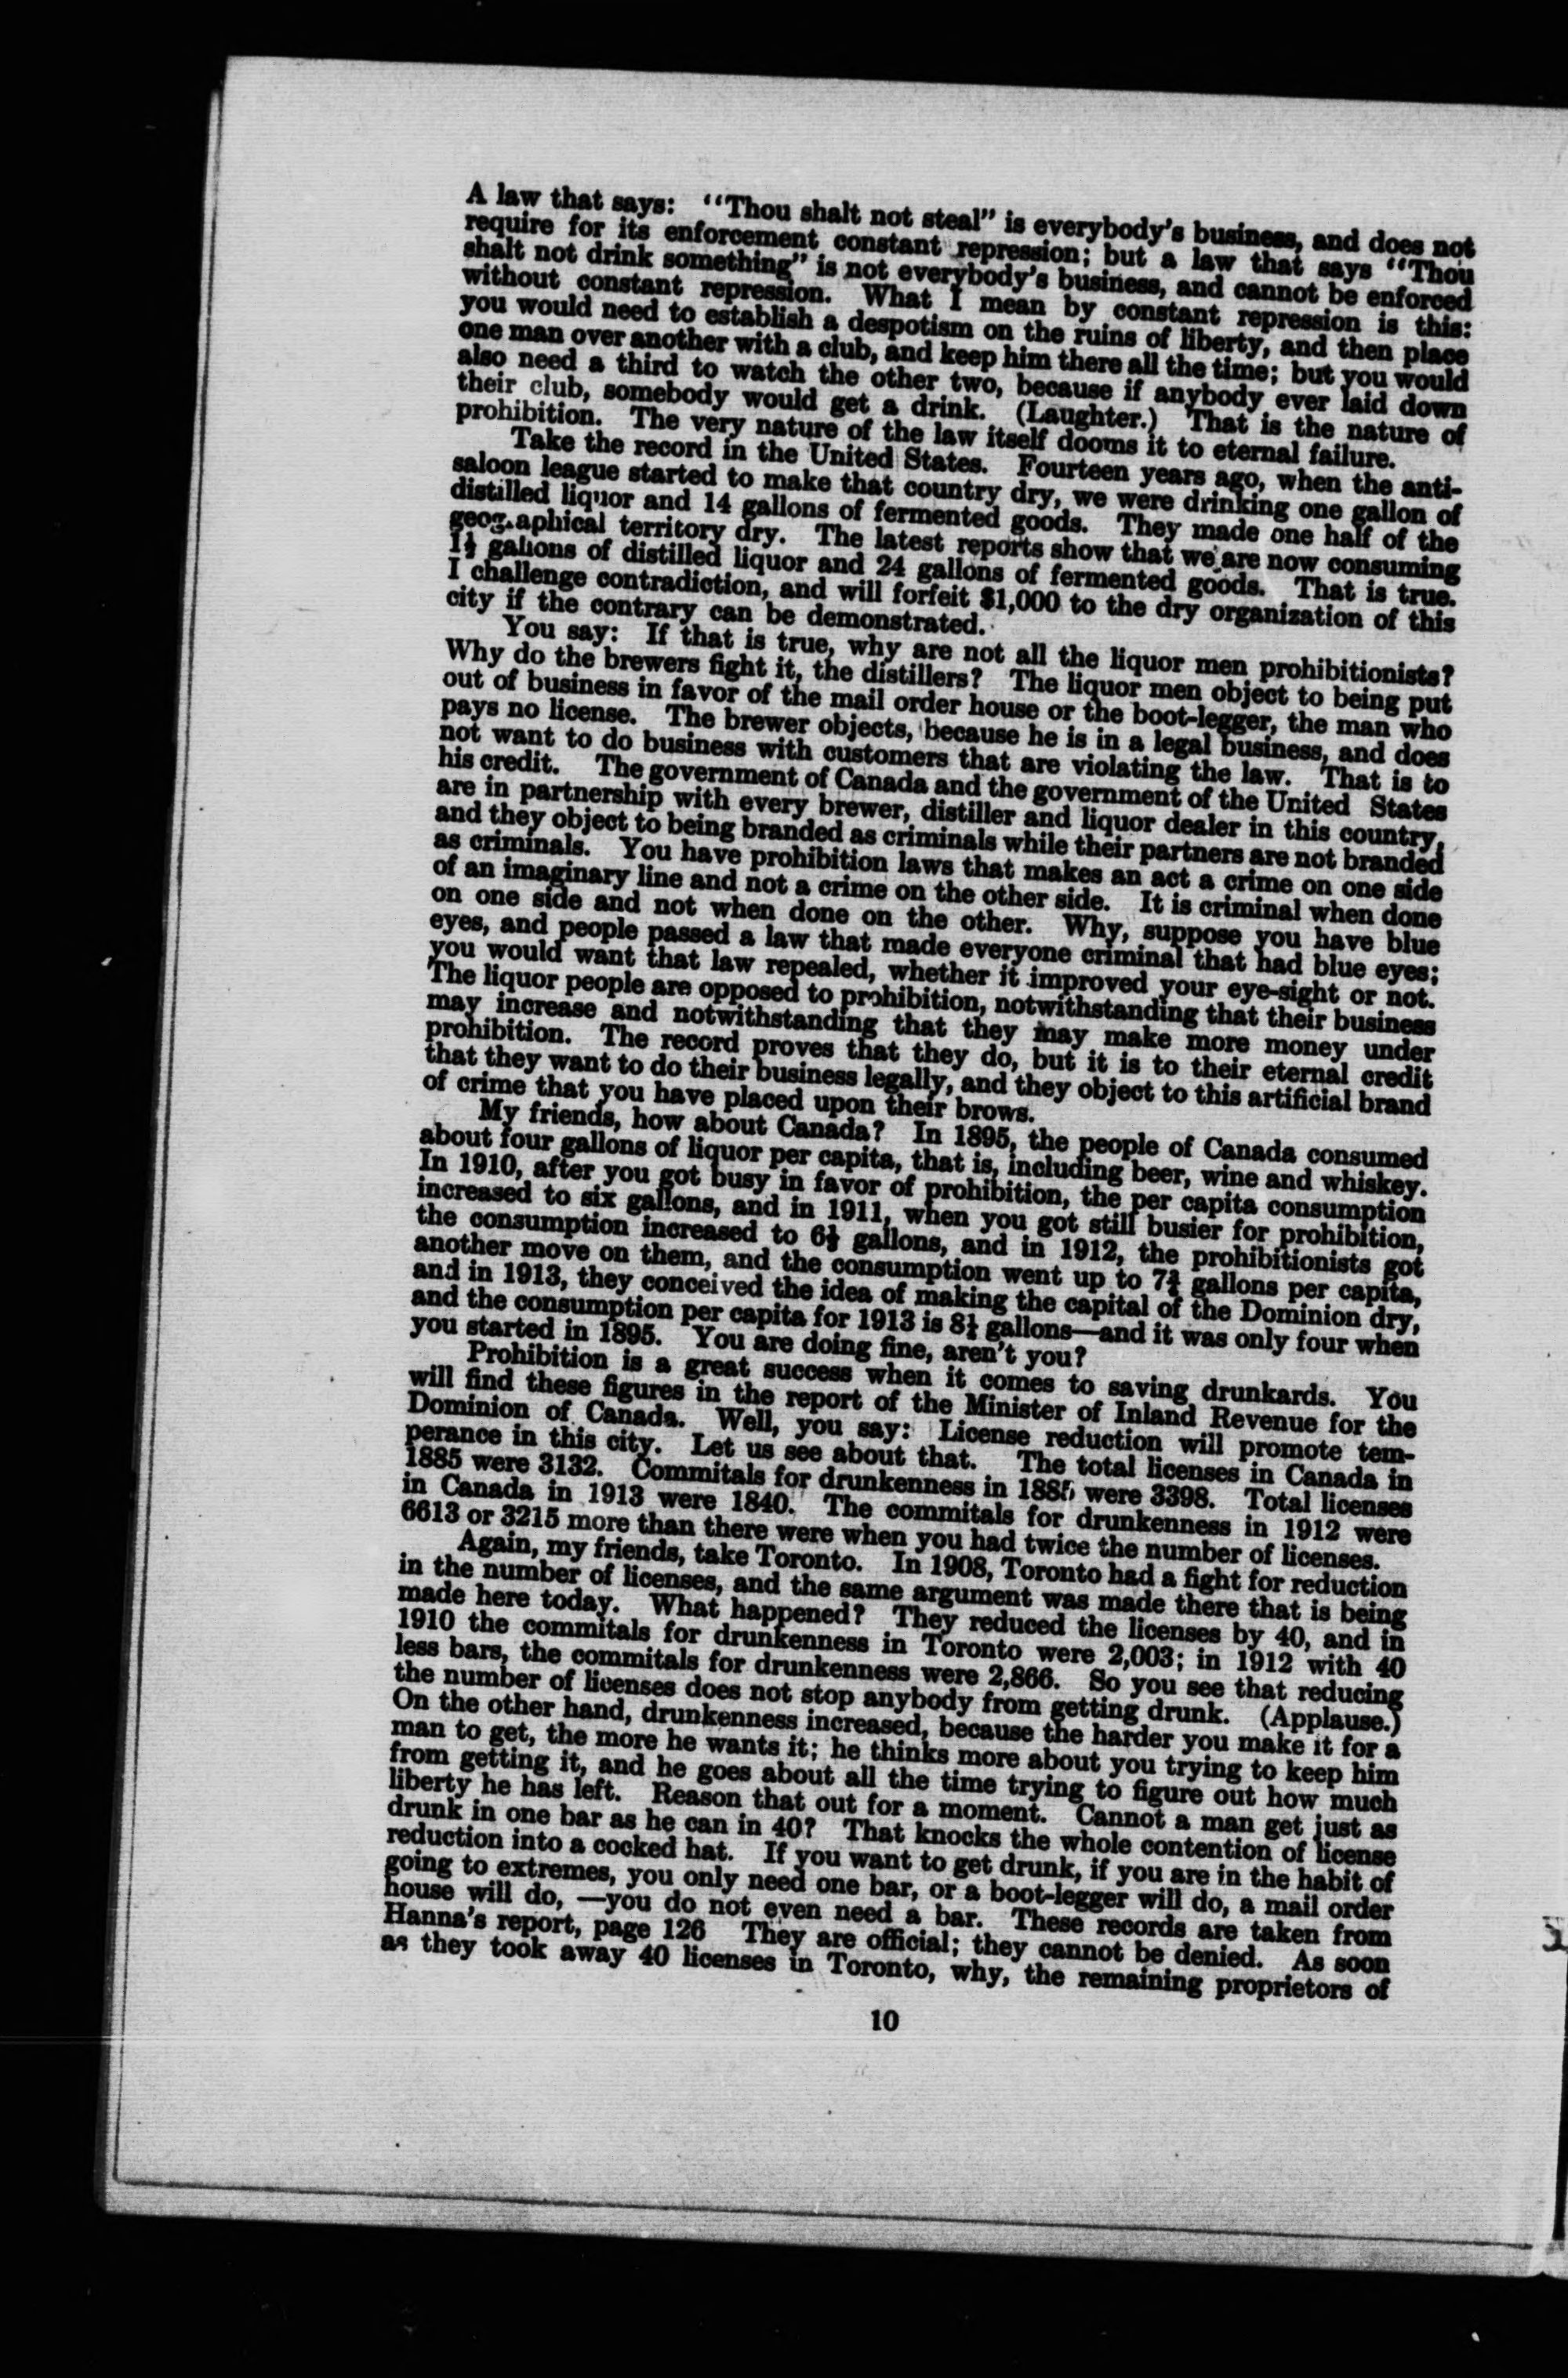 A law that says: "Thou shalt not steal" is everybody's business, and does not
require for its enforcement constant repression; but a law that says "Thou
shalt not drink something" is not everybody's business, and cannot be enforced
without constant repression. What I mean by constant repression is this:
you would need to establish a despotism on the ruins of liberty, and then place
one man over another with a club, and keep him there all the time; but you would
also need a third to watch the other two, because if anybody ever laid down
their club, somebody would get a drink. (Laughter.) That is the nature of
prohibition. The very nature of the law itself dooms it to eternal failure.
Take the record in the United States. Fourteen years ago, when the anti-
saloon league started to make that country dry, we were drinking one gallon of
distilled liquor and 14 gallons of fermented goods. They made one half of the
geographical territory dry. The latest reports show that we are now consuming
1½ gallons of distilled liquor and 24 gallons of fermented goods. That is true.
I challenge contradiction, and will forfeit $1,000 to the dry organization of this
city if the contrary can be demonstrated.
You say: If that is true, why are not all the liquor men prohibitionists?
Why do the brewers fight it, the distillers? The liquor men object to being put
out of business in favor of the mail order house or the boot-legger, the man who
pays no license. The brewer objects, because he is in a legal business, and does
not want to do business with customers that are violating the law. That is to
his credit. The government of Canada and the government of the United States
are in partnership with every brewer, distiller and liquor dealer in this country,
and they object to being branded as criminals while their partners are not branded
as criminals. You have prohibition laws that makes an act a crime on one side
of an imaginary line and not a crime on the other side. It is criminal when done
on one side and not when done on the other. Why, suppose you have blue
eyes, and people passed a law that made everyone criminal that had blue eyes;
you would want that law repealed, whether it improved your eye-sight or not.
The liquor people are opposed to prohibition, notwithstanding that their business
may increase and notwithstanding that they may make more money under
prohibition. The record proves that they do, but it is to their eternal credit
that they want to do their business legally, and they object to this artificial brand
of crime that you have placed upon their brows.
My friends, how about Canada? In 1895, the people of Canada consumed
about four gallons of liquor per capita, that is, including beer, wine and whiskey.
In 1910, after you got busy in favor of prohibition, the per capita consumption
increased to six gallons, and in 1911, when you got still busier for prohibition,
the consumption increased to 6½ gallons, and in 1912, the prohibitionists got
another move on them, and the consumption went up to gallons per capita,
and in 1913, they conceived the idea of making the capital of the Dominion dry,
and the consumption per capita for 1913 is gallons—and it was only four when
you started in 1895. You are doing fine, aren't you?
Prohibition is a great success when it comes to saving drunkards. You
will find these figures in the report of the Minister of Inland Revenue for the
Dominion of Canada. Well, you say: License reduction will promote tem-
perance in this city. Let us see about that. The total licenses in Canada in
1885 were 3132. Commitals for drunkenness in 1885 were 3398. Total licenses
in Canada in 1913 were 1840. The commitals for drunkenness in 1912 were
6613 or 3215 more than there were when you had twice the number of licenses.
Again, my friends, take Toronto. In 1908, Toronto had a fight for reduction
in the number of licenses, and the same argument was made there that is being
made here today. What happened? They reduced the licenses by 40, and in
1910 the commitals for drunkenness in Toronto were 2,003; in 1912 with 40
less bars, the commitals for drunkenness were 2,866. So you see that reducing
the number of licenses does not stop anybody from getting drunk. (Applause.)
On the other hand, drunkenness increased, because the harder you make it for a
man to get, the more he wants it; he thinks more about you trying to keep him
from getting it, and he goes about all the time trying to figure out how much
liberty he has left. Reason that out for a moment. Cannot a man get just as
drunk in one bar as he can in 40? That knocks the whole contention of license
reduction into a cocked hat. If you want to get drunk, if you are in the habit of
going to extremes, you only need one bar, or a boot-legger will do, a mail order
house will do, —you do not even need a bar. These records are taken from
Hanna's report, page 126 They are official; they cannot be denied. As soon
as they took away 40 licenses in Toronto, why, the remaining proprietors of
10